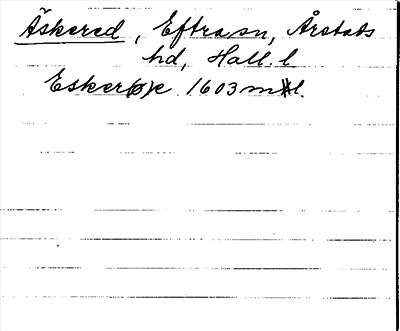 Äskered, Eftra sn, Årstads
hd, Hall. l
Esker(ø)e 1603 ml.